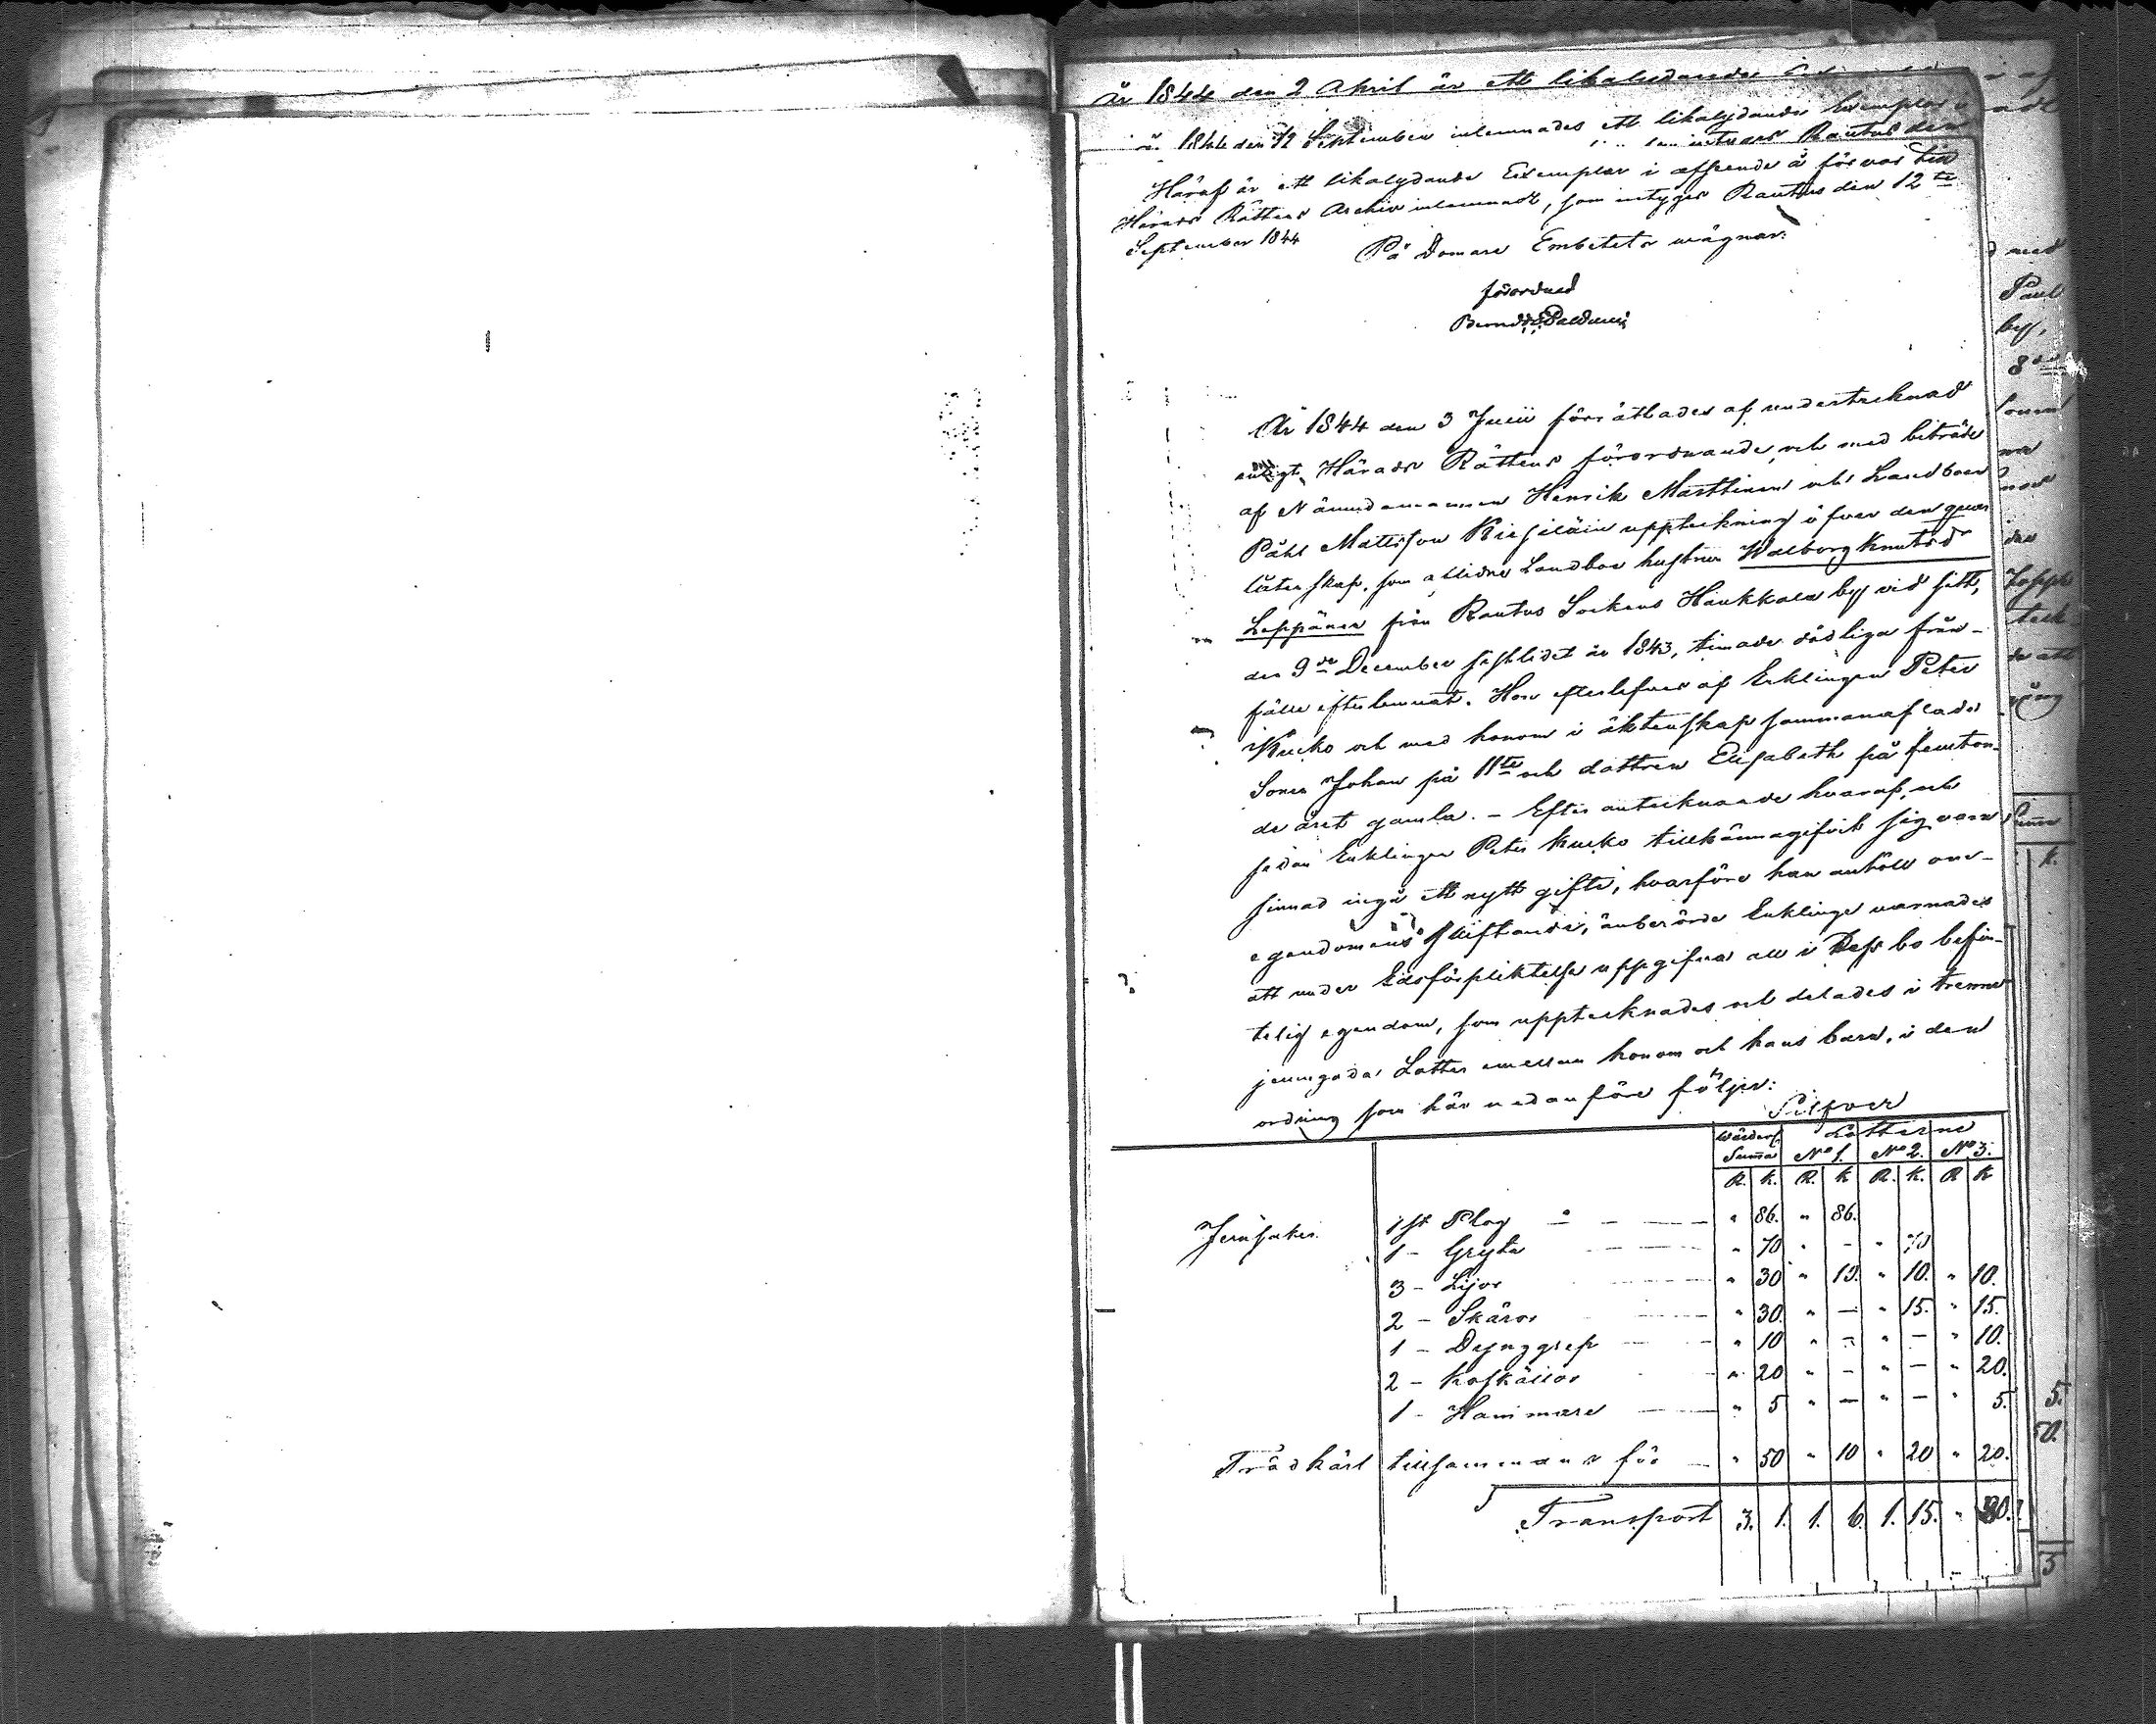 År 1844 den 2 April är ett likalydande
år 1844 den 12 September inlemnades ett likalydande Exemplar
intyges Rautus den
Häraf är ett likalydande Exemplar i afseende å förvar till
Härads Rättens Archiv inlemnadt, som intyges Rautus den 12te
September 1844
På Domare Embetets wägnar:
förordnad
År 1844 den 3 Junii förrättades af undertecknad
enligt Härads Rättens förordnande, och med biträde
af Nämndemannen Henrik Marttinen och Landboen
Påhl Mattsson Kiesiläin uppteckning öfver den qvar
låtenskap, som aflidna Landboe hustrun Walborg Knutsdr
Leppänen från Rautus Sockens Haukkala by vid sitt,
den 9de December sistlidet år 1843, timade dödliga från-
fälle efterlemnat. Hon efterlefves af Enklingen Peter
Kucko och med honom i äktenskap sammanaflade
Sonen Johan på 11te och dottren Elisabeth på femton-
de året gamla. - Efter antecknande hvaraf, och
sedan Enklingen Peter Kucko tillkännagifvit sig vara
sinnad ingå ett nytt gifte, hvarföre han anhöll om
egendomens skiftande, änberörde Enklinge warnades
att under Edsförpliktelse uppgifva all i Dess bo befin-
telig egendom, som upptecknades och delades i trenne
jemngoda Lotter emellan honom och hans barn, i den
ordning som här nedanföre följer:
Silfver
Wärder. Summa Lotterne No 1. No 2. No 3.
R. k. R. k R. k. R k
Jernsaker. 1 st Plog " 86. " 86.
1 - Gryta " 70 " - " 70
3 - Lijor " 30 " 10. " 10. " 10.
2 - Skäror " 30. " - " 15. " 15.
1 - Dynggrep " 10 " - " - " 10.
2 - Koskällor " 20 " - " - " 20.
1 - Hammare " 5 " - " - " 5.
Trädkärl tillsammans för " 50 " 10 " 20 " 20.
Transport 3. 1. 1. 6. 1. 15. " 80.